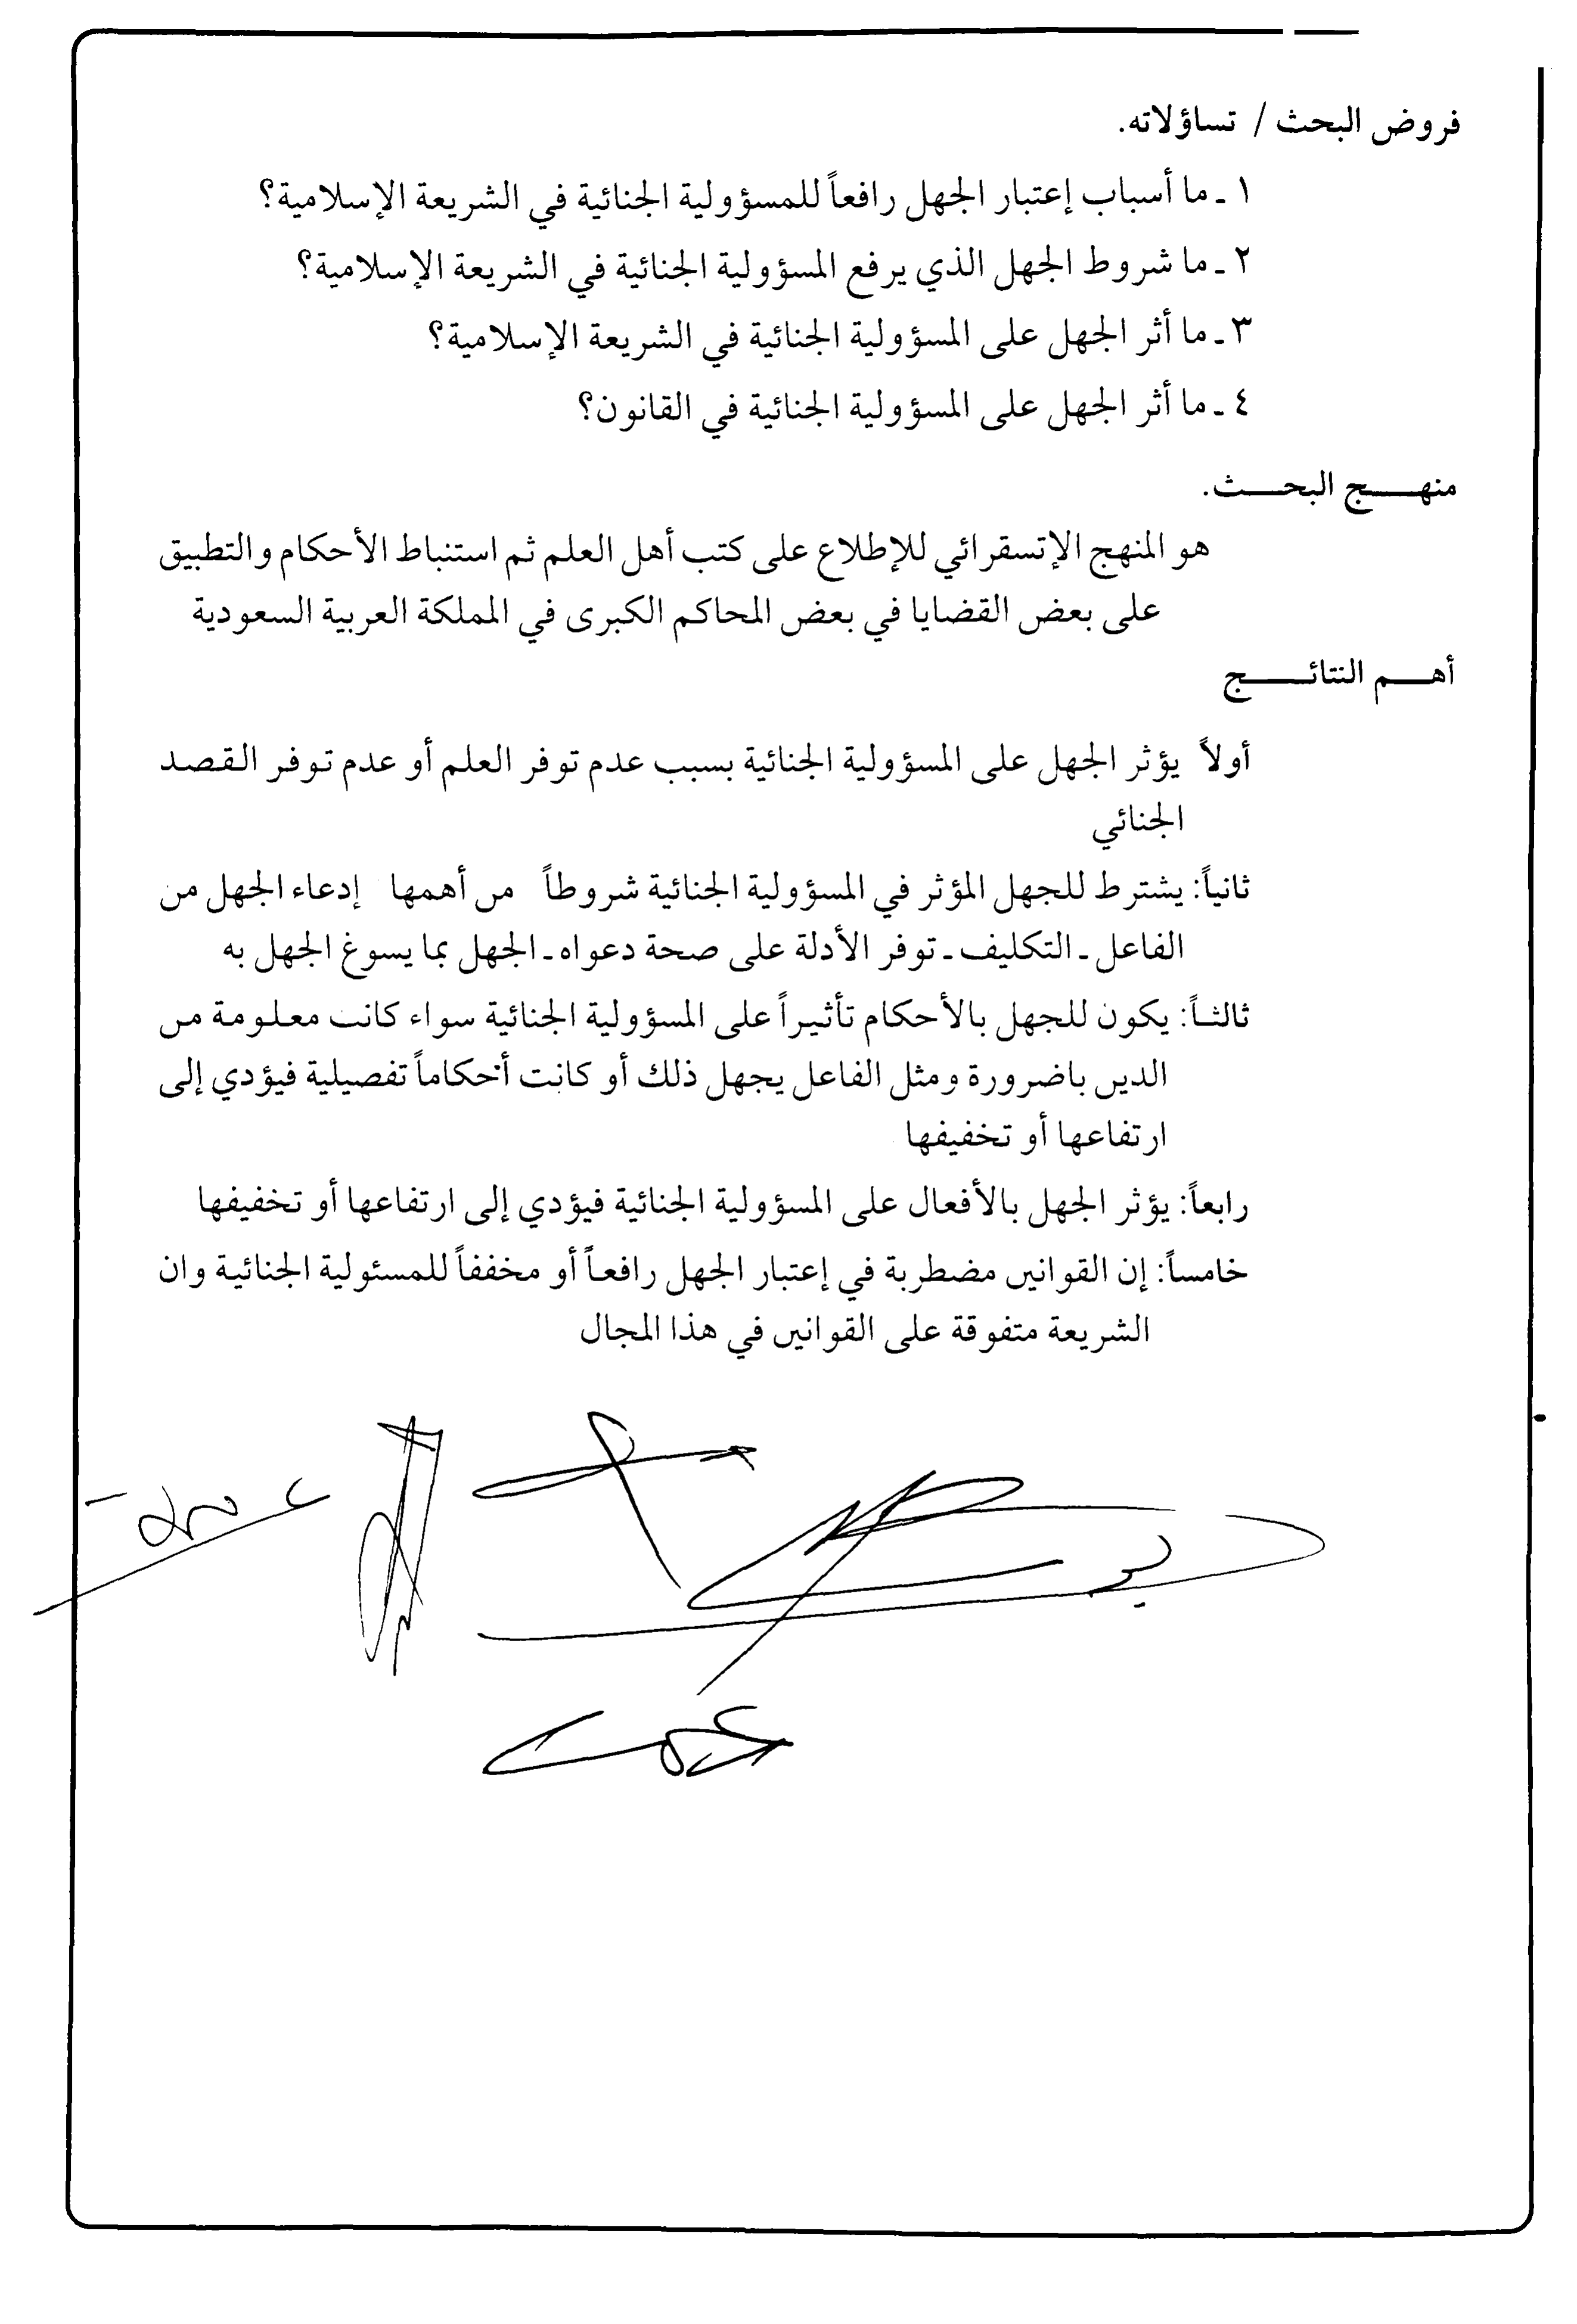 فروض البحث / تساؤلاته.
١ ـ ما أسباب إعتبار الجهل رافعاً للمسؤولية الجنائية في الشريعة الإسلامية؟
٢ ـ ما شروط الجهل الذي يرفع المسؤولية الجنائية في الشريعة الإسلامية؟
٣ ـ ما أثر الجهل على المسؤولية الجنائية في الشريعة الإسلامية؟
٤ ـ ما أثر الجهل على المسؤولية الجنائية في القانون؟
منهـــج البحـــث.
هو المنهج الإتسقرائي للإطلاع على كتب أهل العلم ثم استنباط الأحكام والتطبيق
على بعض القضايا في بعض المحاكم الكبرى في المملكة العربية السعودية
أهـــم النتائـــج
أولاً يؤثر الجهل على المسؤولية الجنائية بسبب عدم توفر العلم أو عدم توفر القصد
الجنائي
ثانياً: يشترط للجهل المؤثر في المسؤولية الجنائية شروطاً من أهمها إدعاء الجهل من
الفاعل ـ التكليف ـ توفر الأدلة على صحة دعواه ـ الجهل بما يسوغ الجهل به
ثالثـاً: يكون للجهل بالأحكام تأثيراً على المسؤولية الجنائية سواء كانت معلومة من
الدين باضرورة ومثل الفاعل يجهل ذلك أو كانت أحكاماً تفصيلية فيؤدي إلى
ارتفاعها أو تخفيفها
رابعاً: يؤثر الجهل بالأفعال على المسؤولية الجنائية فيؤدي إلى ارتفاعها أو تخفيفها
خامساً: إن القوانين مضطربة في إعتبار الجهل رافعاً أو مخففاً للمسئولية الجنائية وان
الشريعة متفوقة على القوانين في هذا المجال